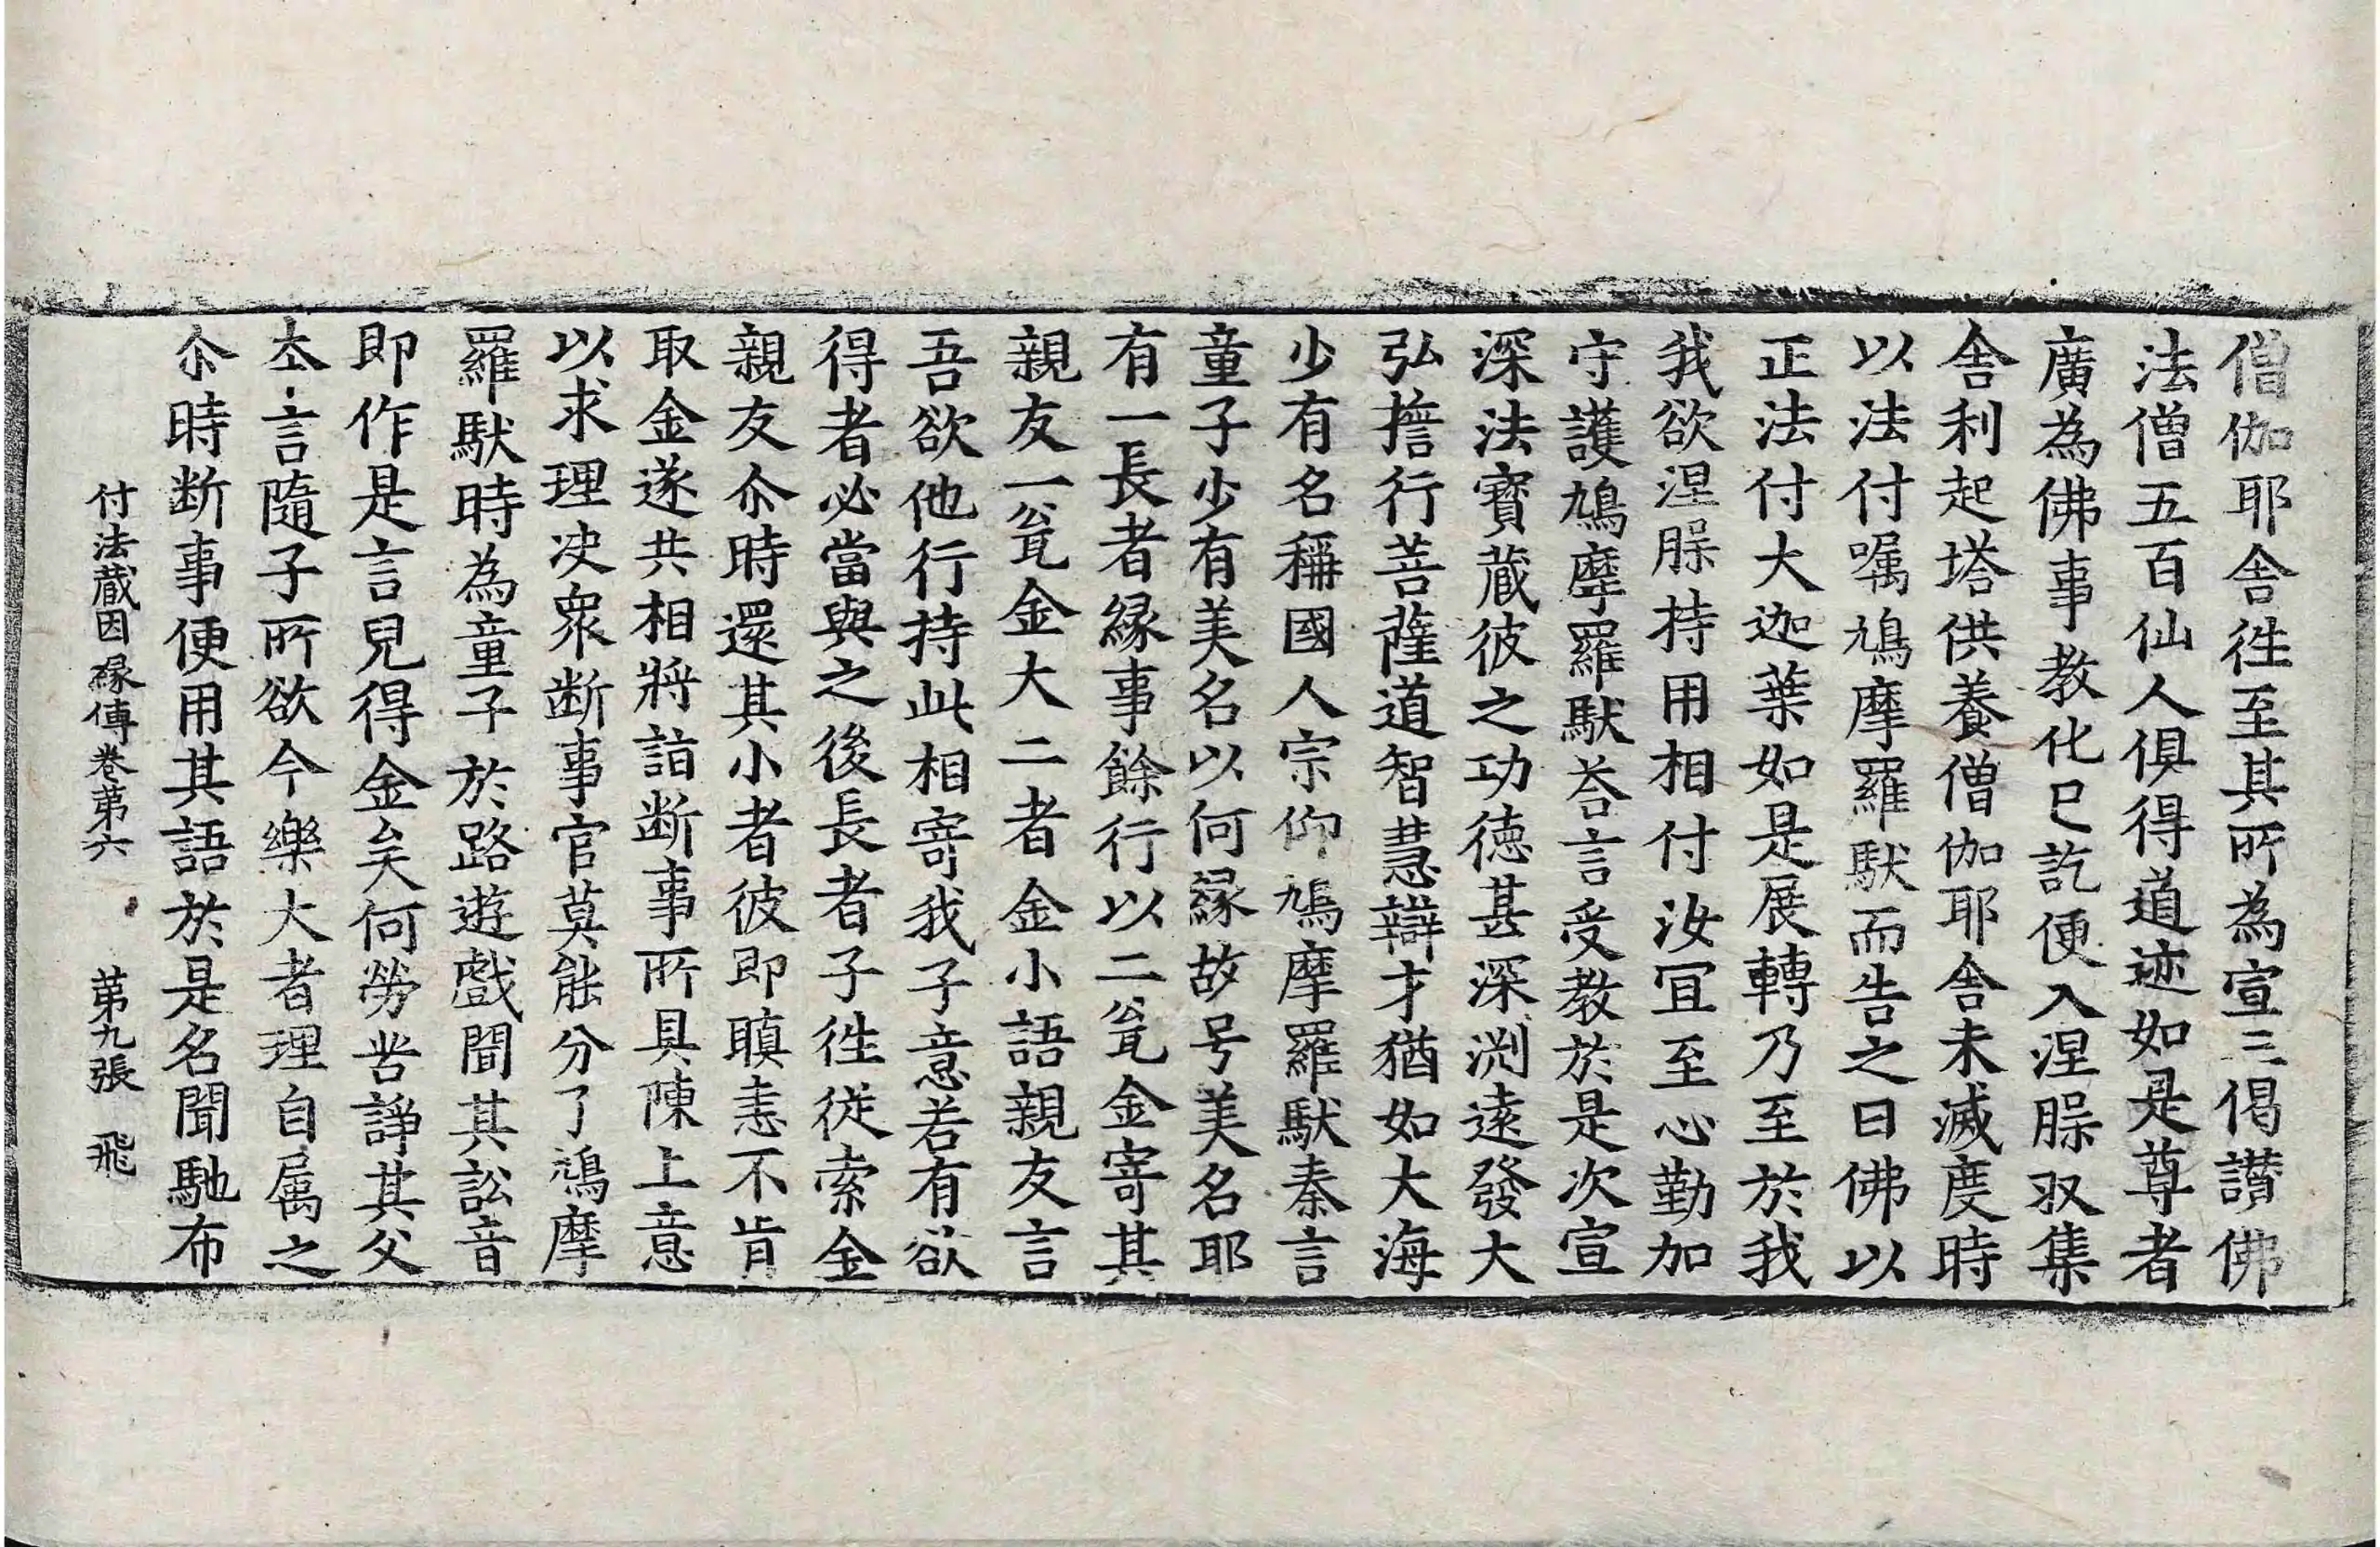 僧伽耶舍徃至其所為宣三偈讃佛
法僧五百仙人俱得道迹如是尊者
廣為佛事教化已訖便入涅槃収集
舍利起塔供養僧伽耶舍未滅度時
以法付嘱鳩摩羅馱而告之曰佛以
正法付大迦葉如是展轉乃至於我
我欲涅槃持用相付汝冝至心勤加
守護鳩摩羅馱荅言受教於是次宣
深法寳蔵彼之功德甚深渕遠發大
弘誓行菩薩道智慧辯才猶如大海
少有名稱國人宗仰鳩摩羅馱秦言
童子少有美名以何縁故号美名耶
有一長者縁事餘行以二瓮金寄其
親友一瓮金大二者金小語親友言
吾欲他行持此相寄我子意若有欲
得者必當與之後長者子徃従索金
親友尒時還其小者彼即瞋恚不肯
取金遂共相將詣断事所具陳上意
以求理决衆断事官莫能分了鳩摩
羅馱時為童子於路遊戲聞其訟音
即作是言兒得金矣何勞苦諍其父
本言隨子所欲今樂大者理自属之
尒時断事便用其語於是名聞馳布
付法蔵因縁傳卷第六 第九張 飛